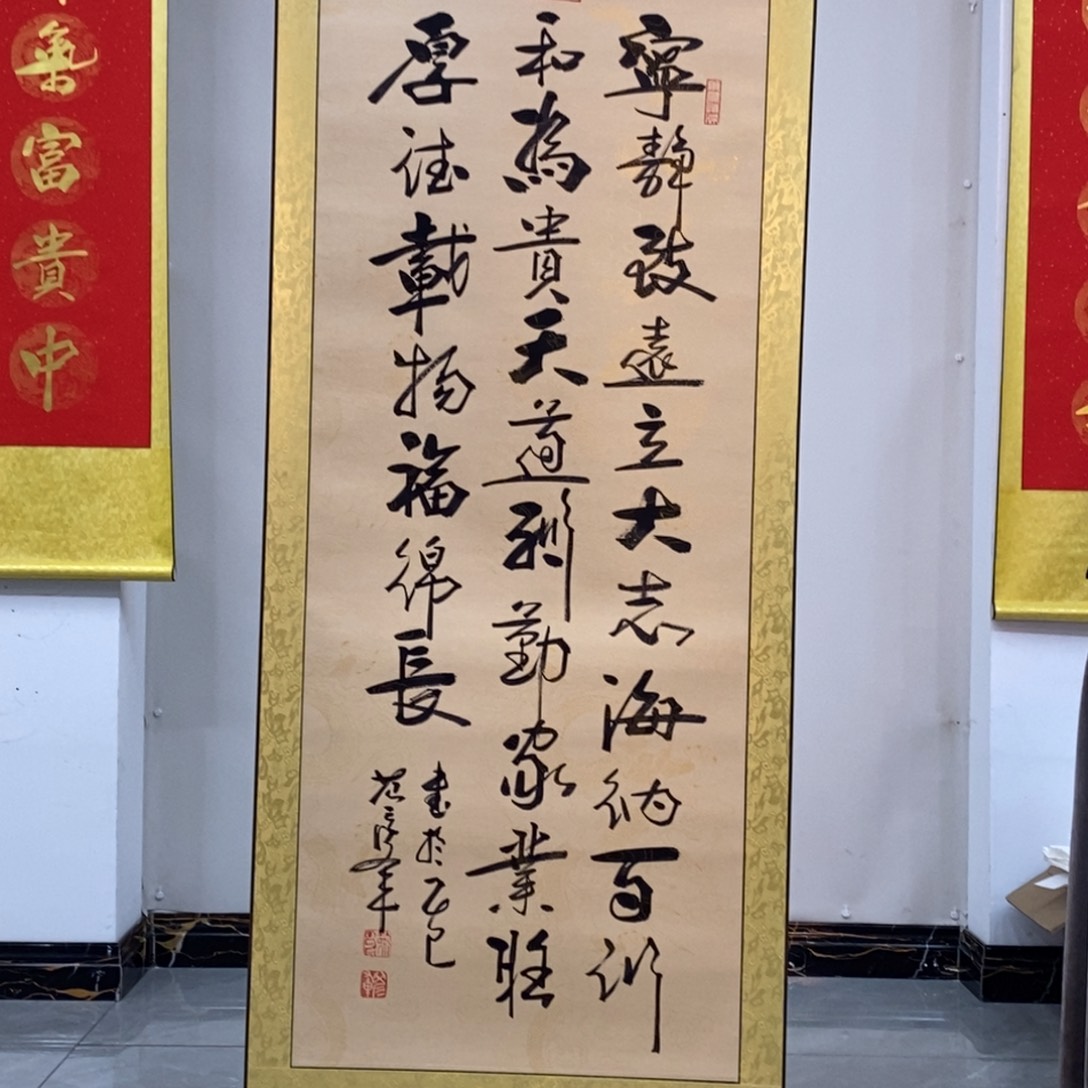 寧靜致遠立大志海納百川
和為貴天道酬勤家業旺
厚德載物福綿長
書於乙巳
氣富貴中